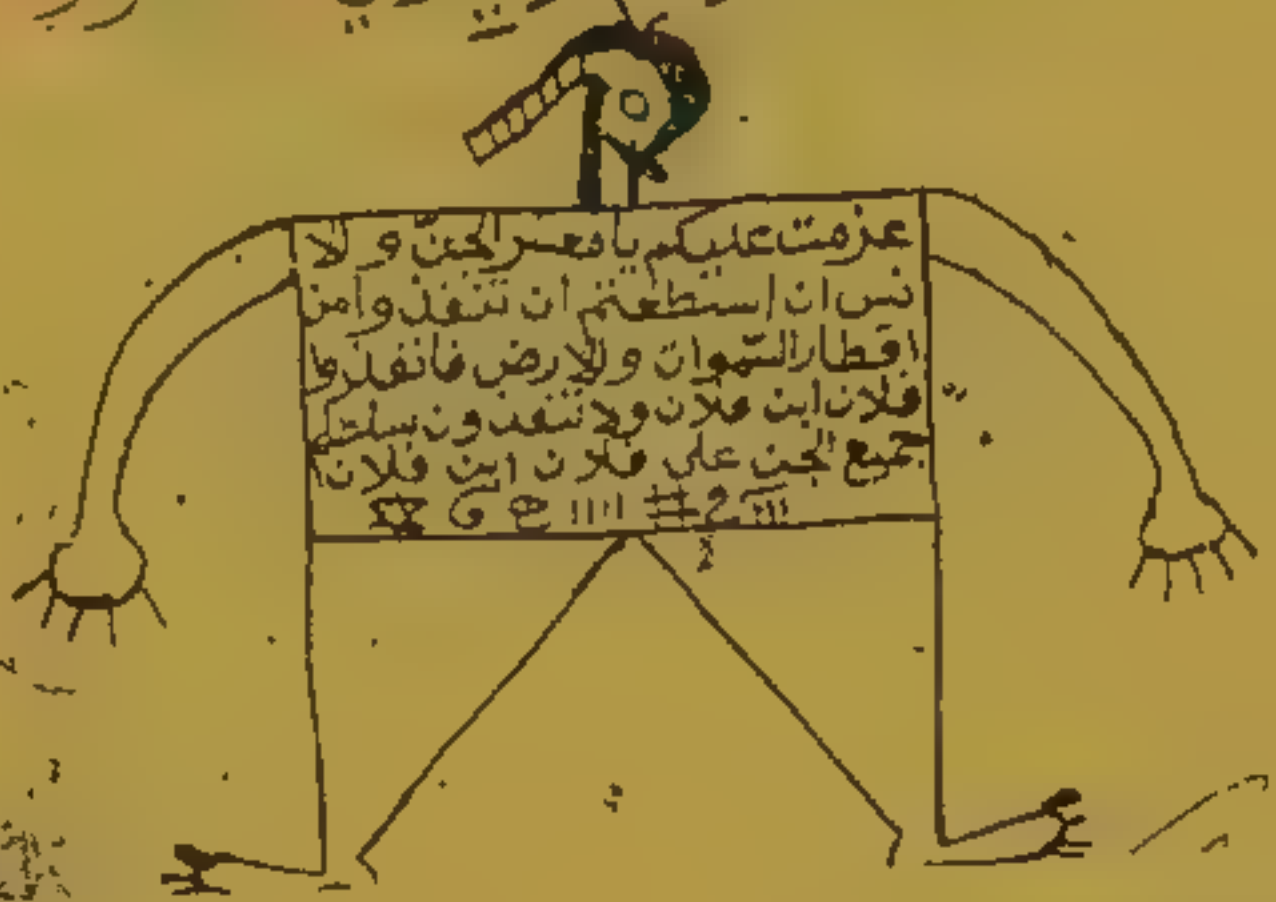 عزمت عليكم يا معسر الجن و الا
نس ان استطعتم ان تنفذوا من
اقطار السموات والارض فانفذوا
فلان ابن فلان ولا تنفذون
جميع الجن على فلان ابن فلان